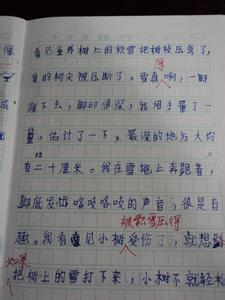 看见屋外树上的积雪把树枝压弯了,
有的树尖被压断了。雪真厚啊,一脚
踩下去,脚印很深,我用手量了一
量,估计了一下,最深的地方大约
有二十厘米。我在雪地上奔跑着,
脚底发出咯吱咯吱的声音,很是有
被积雪压得
趣。我看见小树受伤了,就想到
把树上的雪打下来,小树不就轻松